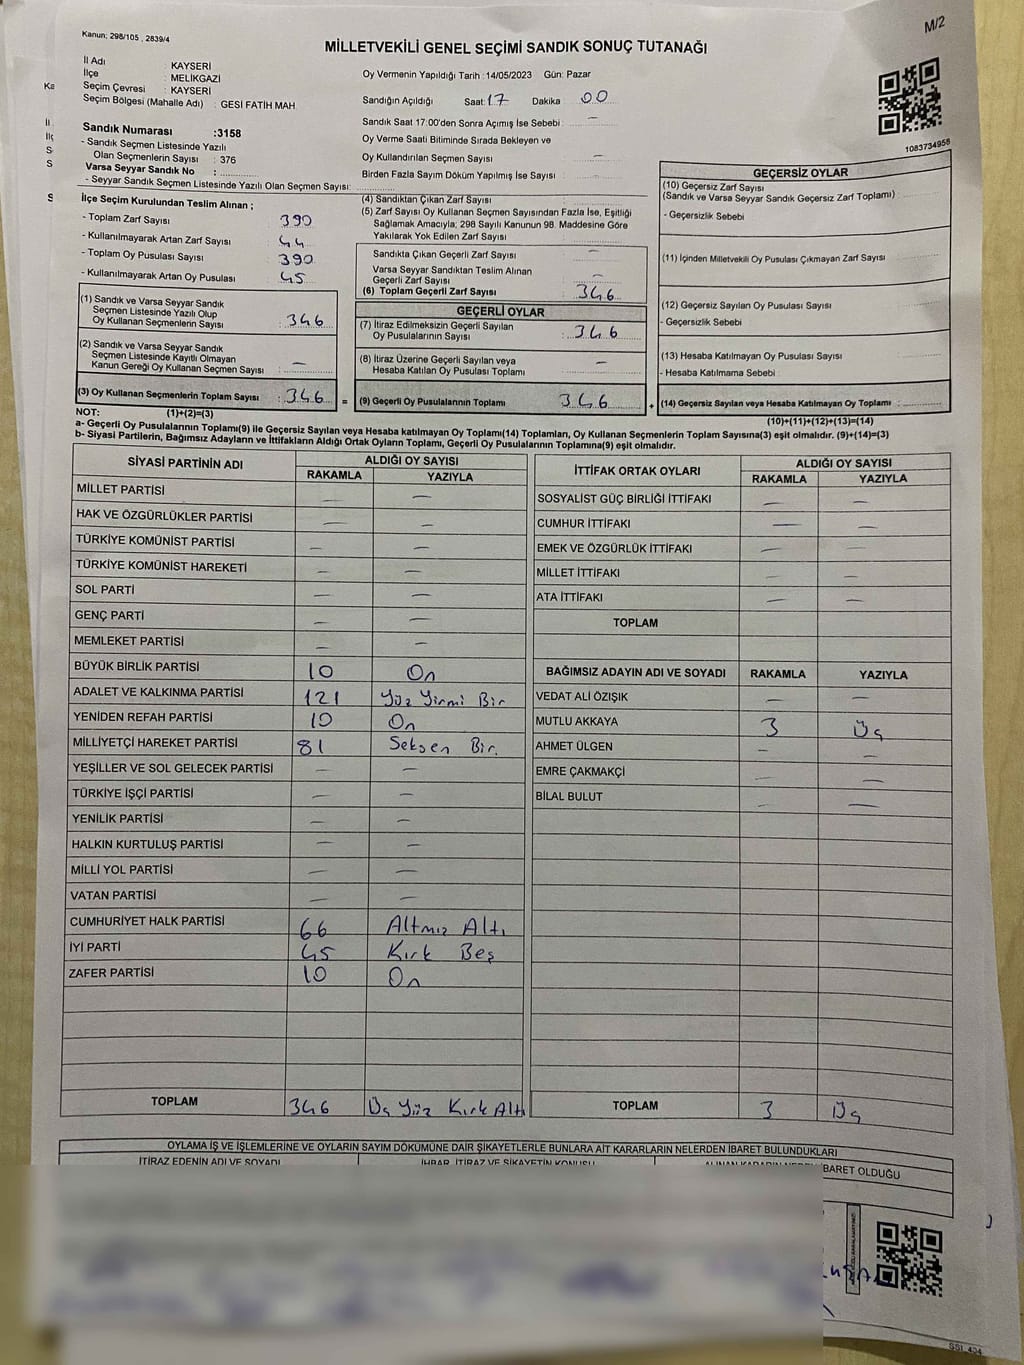 M/2
Kanun; 298/105 , 2839/4
MİLLETVEKİLİ GENEL SEÇİMİ SANDIK SONUÇ TUTANAĞI
İl Adı : KAYSERİ
İlçe : MELİKGAZİ
Seçim Çevresi : KAYSERİ
Seçim Bölgesi (Mahalle Adı) : GESİ FATİH MAH
Oy Vermenin Yapıldığı Tarih : 14/05/2023 Gün: Pazar
Sandığın Açıldığı Saat: 17 Dakika 00
Sandık Saat 17:00'den Sonra Açımış İse Sebebi : —
Oy Verme Saati Bitiminde Sırada Bekleyen ve
Oy Kullandırılan Seçmen Sayısı —
Birden Fazla Sayım Döküm Yapılmış İse Sayısı :
1083734956
Sandık Numarası :3158
- Sandık Seçmen Listesinde Yazılı
Olan Seçmenlerin Sayısı : 376
Varsa Seyyar Sandık No :
- Seyyar Sandık Seçmen Listesinde Yazılı Olan Seçmen Sayısı:
İlçe Seçim Kurulundan Teslim Alınan ;
- Toplam Zarf Sayısı : 390
- Kullanılmayarak Artan Zarf Sayısı : 44
- Toplam Oy Pusulası Sayısı : 390
- Kullanılmayarak Artan Oy Pusulası : 45
(1) Sandık ve Varsa Seyyar Sandık
Seçmen Listesinde Yazılı Olup
Oy Kullanan Seçmenlerin Sayısı : 346
(2) Sandık ve Varsa Seyyar Sandık
Seçmen Listesinde Kayıtlı Olmayan
Kanun Gereği Oy Kullanan Seçmen Sayısı : —
(3) Oy Kullanan Seçmenlerin Toplam Sayısı : 346 =
(4) Sandıktan Çıkan Zarf Sayısı :
(5) Zarf Sayısı Oy Kullanan Seçmen Sayısından Fazla İse, Eşitliği
Sağlamak Amacıyla; 298 Sayılı Kanunun 98. Maddesine Göre
Yakılarak Yok Edilen Zarf Sayısı :
Sandıkta Çıkan Geçerli Zarf Sayısı : —
Varsa Seyyar Sandıktan Teslim Alınan
Geçerli Zarf Sayısı : —
(6) Toplam Geçerli Zarf Sayısı : 346
GEÇERLİ OYLAR
(7) İtiraz Edilmeksizin Geçerli Sayılan
Oy Pusulalarının Sayısı : 346
(8) İtiraz Üzerine Geçerli Sayılan veya
Hesaba Katılan Oy Pusulası Toplamı : —
(9) Geçerli Oy Pusulalarının Toplamı 346 +
GEÇERSİZ OYLAR
(10) Geçersiz Zarf Sayısı
(Sandık ve Varsa Seyyar Sandık Geçersiz Zarf Toplamı) :
- Geçersizlik Sebebi
(11) İçinden Milletvekili Oy Pusulası Çıkmayan Zarf Sayısı
(12) Geçersiz Sayılan Oy Pusulası Sayısı :
- Geçersizlik Sebebi
(13) Hesaba Katılmayan Oy Pusulası Sayısı :
- Hesaba Katılmama Sebebi :
(14) Geçersiz Sayılan veya Hesaba Katılmayan Oy Toplamı :
NOT: (1)+(2)=(3)
(10)+(11)+(12)+(13)=(14)
a- Geçerli Oy Pusulalarının Toplamı(9) ile Geçersiz Sayılan veya Hesaba katılmayan Oy Toplamı(14) Toplamları, Oy Kullanan Seçmenlerin Toplam Sayısına(3) eşit olmalıdır. (9)+(14)=(3)
b- Siyasi Partilerin, Bağımsız Adayların ve İttifakların Aldığı Ortak Oyların Toplamı, Geçerli Oy Pusulalarının Toplamına(9) eşit olmalıdır.
SİYASİ PARTİNİN ADI ALDIĞI OY SAYISI
RAKAMLA YAZIYLA
MİLLET PARTİSİ — —
HAK VE ÖZGÜRLÜKLER PARTİSİ — —
TÜRKİYE KOMÜNİST PARTİSİ — —
TÜRKİYE KOMÜNİST HAREKETİ — —
SOL PARTİ — —
GENÇ PARTİ — —
MEMLEKET PARTİSİ — —
BÜYÜK BİRLİK PARTİSİ 10 On
ADALET VE KALKINMA PARTİSİ 121 Yüz Yirmi Bir
YENİDEN REFAH PARTİSİ 10 On
MİLLİYETÇİ HAREKET PARTİSİ 81 Seksen Bir.
YEŞİLLER VE SOL GELECEK PARTİSİ — —
TÜRKİYE İŞÇİ PARTİSİ — —
YENİLİK PARTİSİ — —
HALKIN KURTULUŞ PARTİSİ — —
MİLLİ YOL PARTİSİ — —
VATAN PARTİSİ — —
CUMHURİYET HALK PARTİSİ 66 Altmız Altı
İYİ PARTİ 45 Kırk Beş
ZAFER PARTİSİ 10 On
TOPLAM 346 Üç Yüz Kırk Altı
İTTİFAK ORTAK OYLARI ALDIĞI OY SAYISI
RAKAMLA YAZIYLA
SOSYALİST GÜÇ BİRLİĞİ İTTİFAKI — —
CUMHUR İTTİFAKI — —
EMEK VE ÖZGÜRLÜK İTTİFAKI — —
MİLLET İTTİFAKI — —
ATA İTTİFAKI — —
TOPLAM
BAĞIMSIZ ADAYIN ADI VE SOYADI RAKAMLA YAZIYLA
VEDAT ALİ ÖZIŞIK — —
MUTLU AKKAYA 3 Üç
AHMET ÜLGEN — —
EMRE ÇAKMAKÇİ — —
BİLAL BULUT — —
TOPLAM 3 Üç
OYLAMA İŞ VE İŞLEMLERİNE VE OYLARIN SAYIM DÖKÜMÜNE DAİR ŞİKAYETLERLE BUNLARA AİT KARARLARIN NELERDEN İBARET BULUNDUKLARI
İTİRAZ EDENİN ADI VE SOYADI İHBAR, İTİRAZ VE ŞİKAYETİN KONUSU BARET OLDUĞU